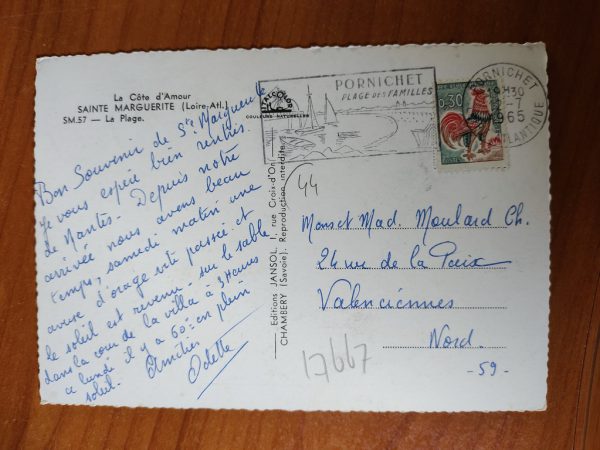 La Côte d'Amour
SAINTE MARGUERITE (Loire-Atl.)
SM.57 — La Plage.
Bon Souvenir de Ste Marguerite
Je vous espère bien rentrés
de Nantes - Depuis notre
arrivée nous avons beau
temps, samedi matin une
averse d'orage vite passée et
le soleil est revenu - sur le sable
dans la cour de la villa à 3 Heures
ce lundi il y a 60° en plein
soleil. Amitiés
Odette
COULEURS NATURELLES
Editions JANSOL, 1, rue Croix-d'Or
CHAMBERY (Savoie). Reproduction interdite.
PORNICHET
PLAGE DES FAMILLES
0,30
PORNICHET
19H30
-7
1965
ATLANTIQUE
44
Mons et Mad. Moulard Ch.
24 rue de la Paix
Valenciennes
Nord.
- 59 -
17667